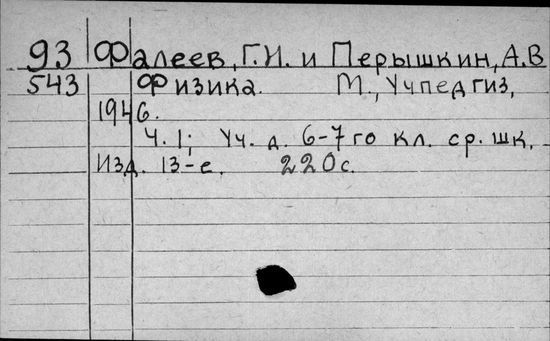 93 Фалеев, Г.И. и Перышкин, А.В
543 Физика. М., Учпедгиз,
1946.
Ч. 1; Уч. д. 6-7го кл. ср. шк.
Изд. 13-е. 220с.